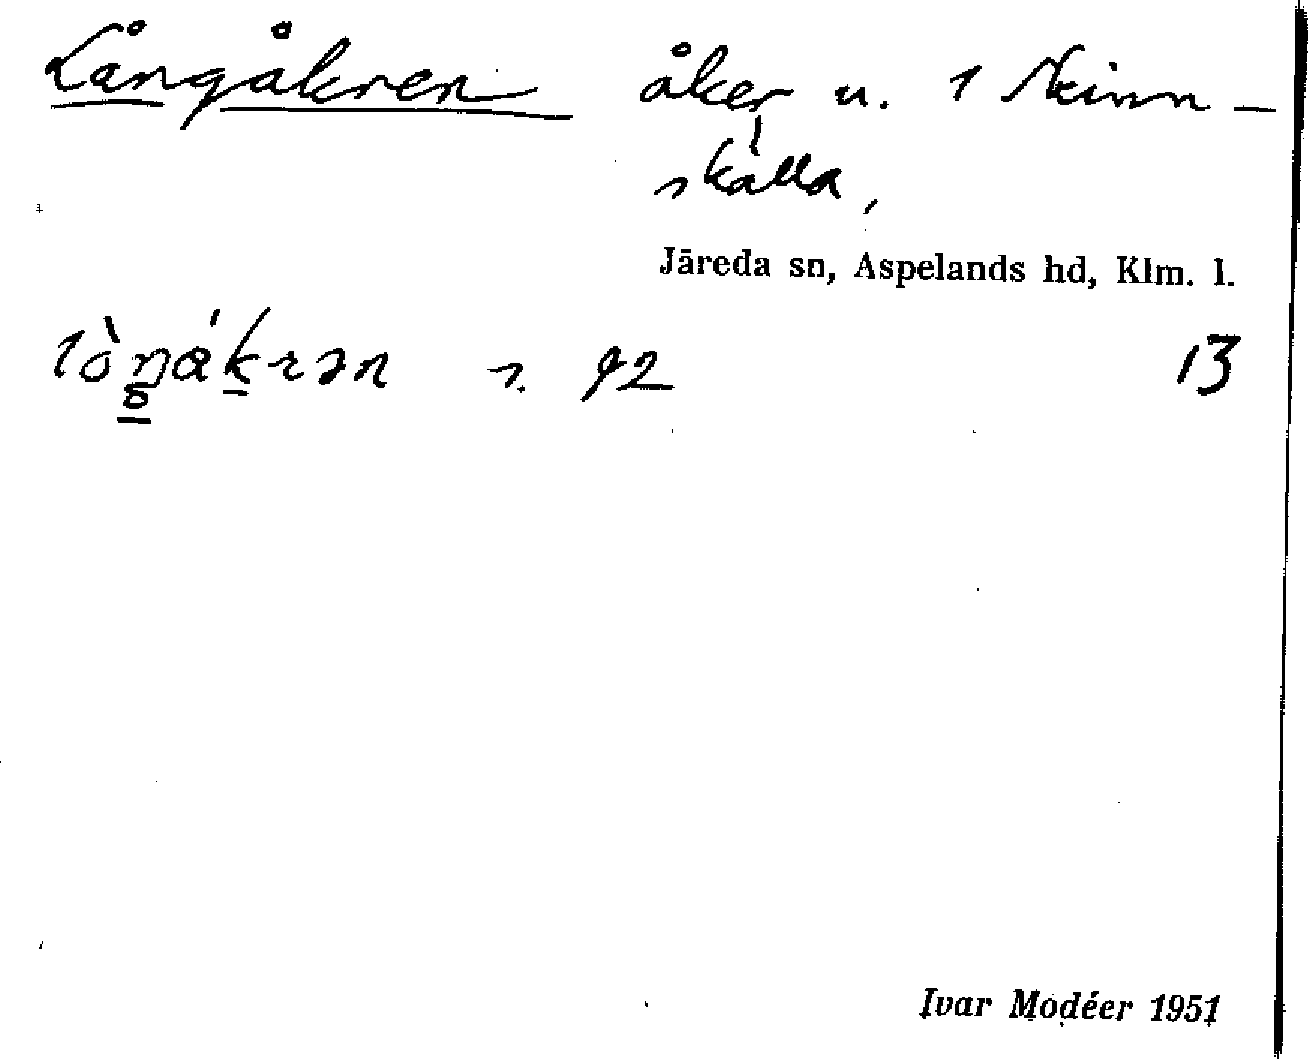 Långåkren åker u. 1 Skinn-
skälla,
Järeda sn, Aspelands hd, Klm. l.
lòŋákrən s. 92 13
Ivar Modéer 1951